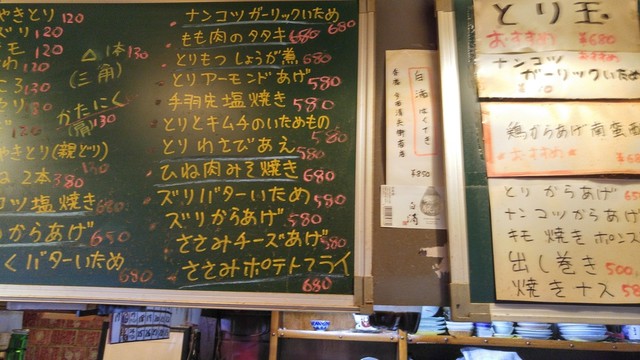 やきとり 120
ズリ 120
モ 120
わ 120
ころ 130
△ 1本 130
(三角)
かたにく
(肩) 130
やきとり(親どり)
130
ね 2本 380
コツ塩焼き 680
からあげ 650
くバターいため
680
ナンコツガーリックいため
680
もも肉のタタキ 680
とりもつしょうが煮 680
とりアーモンドあげ 580
手羽先塩焼き 580
とりとキムチのいためもの
580
とりわさびあえ 580
ひね肉みそ焼き 680
ズリバターいため 580
ズリからあげ 580
ささみチーズあげ 580
ささみポテトフライ
680
白滴
¥850
白滴
とり玉
おすすめ ¥680
ナンコツ おすすめ
ガーリックいため
鶏からあげ南蛮
おすすめ
とりからあげ 65
ナンコツからあげ
キモ焼きポンズ
出し巻き 500
焼きナス 58